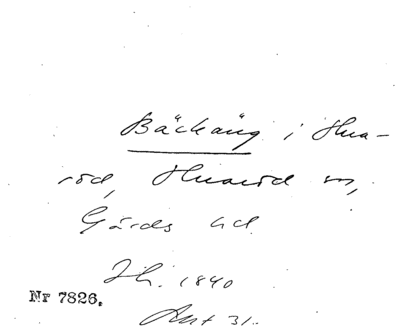 Bäckäng i Hua-
röd, Huaröd sn,
Gärds hd
Sk. 1840
Nr 7826.
Akt 31.